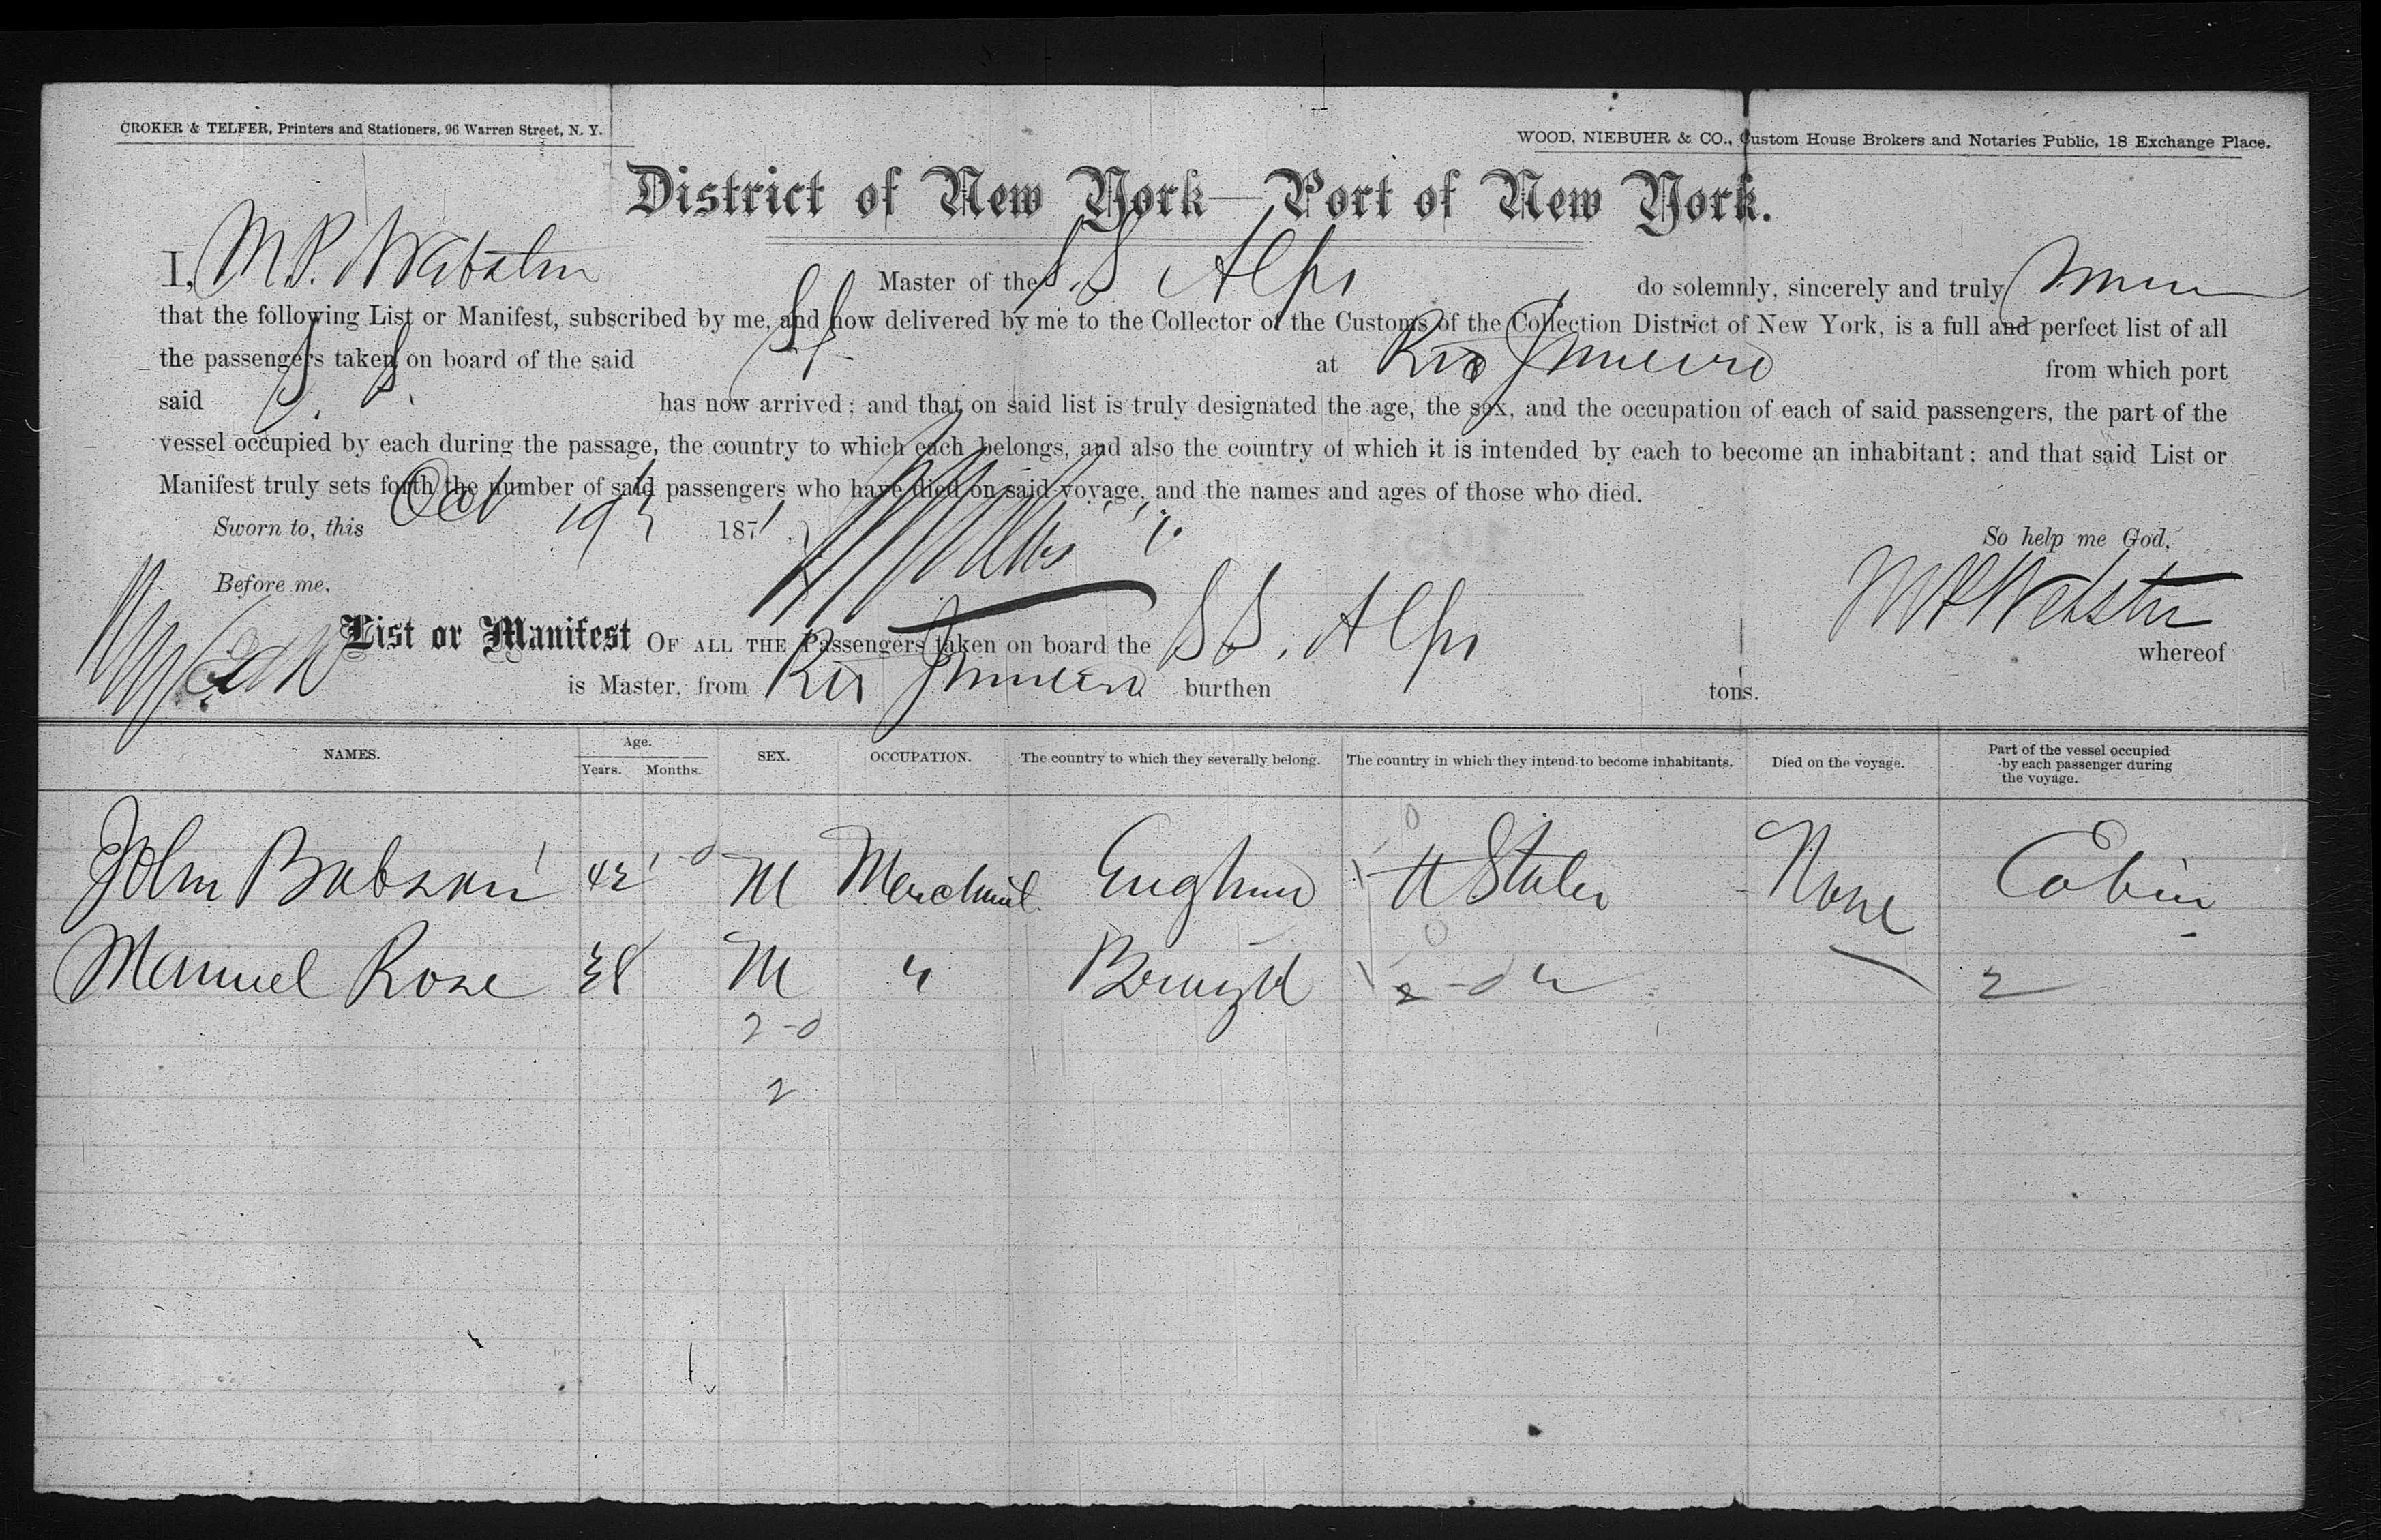 CROKER & TELFER, Printers and Stationers, 96 Warren Street, N. Y.
WOOD, NIEBUHR & CO., Custom House Brokers and Notaries Public, 18 Exchange Place.
District of New York—Port of New York.
I, M.P. Webster Master of the S.S Alps do solemnly, sincerely and truly swear
that the following List or Manifest, subscribed by me, and now delivered by me to the Collector of the Customs of the Collection District of New York, is a full and perfect list of all
the passengers taken on board of the said SS at Rio Janeiro from which port
said S.S. has now arrived; and that on said list is truly designated the age, the sex, and the occupation of each of said passengers, the part of the
vessel occupied by each during the passage, the country to which each belongs, and also the country of which it is intended by each to become an inhabitant; and that said List or
Manifest truly sets forth the number of said passengers who have died on said voyage, and the names and ages of those who died.
Sworn to, this Oct 19 187 So help me God.
Before me, MP Webster
List or Manifest OF ALL THE Passengers taken on board the SS. Alps whereof
is Master, from Rio Janeiro burthen tons.
NAMES. Age. Years. Months. SEX. OCCUPATION. The country to which they severally belong. The country in which they intend to become inhabitants. Died on the voyage. Part of the vessel occupied by each passenger during the voyage.
John Babson 42 M Merchant England U States None Cabin
Manuel Rose 38 M " Brazil
2-0
2